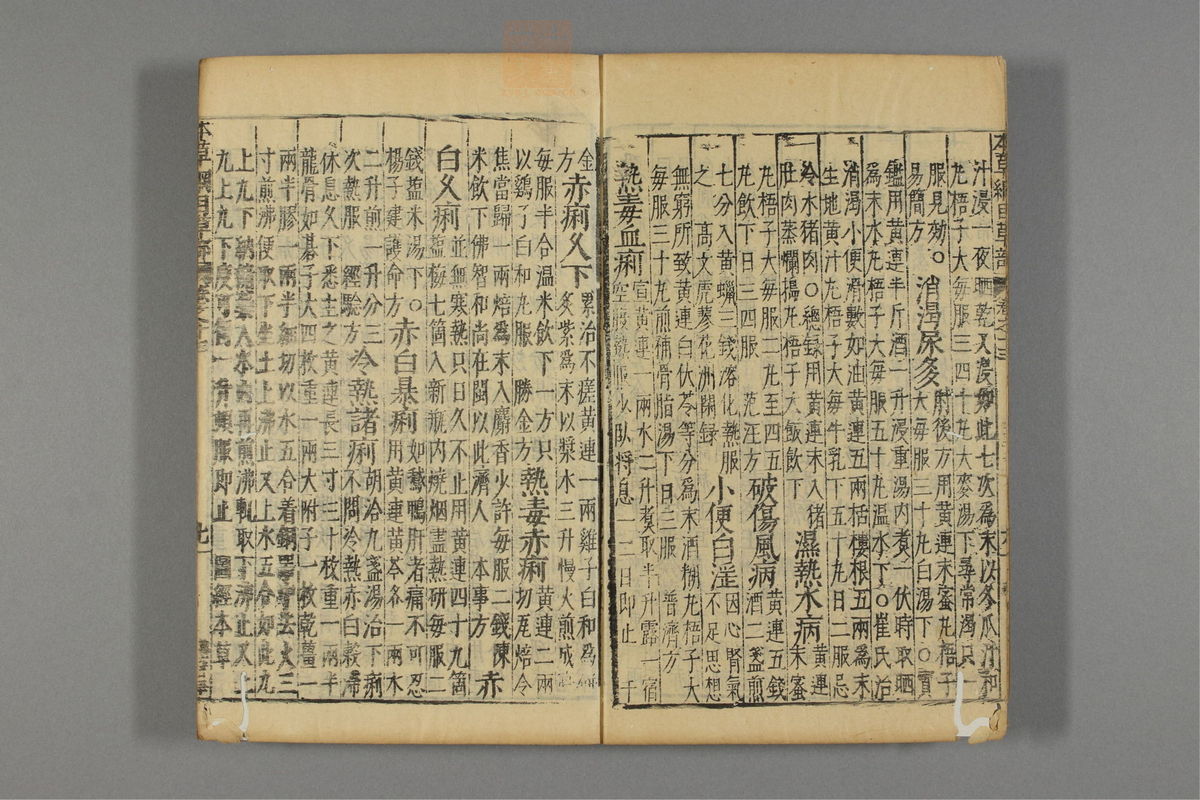 本草綱目草部
汁浸一夜晒乾又浸如此七次為末以冬瓜汁和
丸梧子大每服三四十丸大麥湯下尋常渴只一
服見効。 消渴尿多 肘後方用黃連末蜜丸梧子大每服三十丸白湯下○寶
易簡方
鑑用黃連半斤酒一升浸重湯內煮一伏時取晒
為末水丸梧子大每服五十丸溫水下○崔氏治
消渴小便滑數如油黃連五兩栝樓根五兩為末
生地黃汁丸梧子大每牛乳下五十丸日二服忌
冷水猪肉○總録用黃連末入猪
肚內蒸爛搗丸梧子大飯飲下 濕熱水病 黃連末蜜
丸梧子大每服二丸至四五
丸飲下日三四服 范汪方 破傷風病 黃連五錢酒二盞煎
七分入黃蠟三錢溶化熱服
之 高文虎蓼花洲閒録 小便白淫 因心腎氣不足思想
無窮所致黃連白伏苓等分為末酒糊丸梧子大
每服三十丸煎補骨脂湯下日三服 普濟方
熱毒血痢 宣黃連一兩水二升煮取半升露一宿空腹熱服少臥將息一二日即止 千
金
方 赤痢久下 累治不瘥黃連一兩雞子白和為餅炙紫為末以漿水三升慢火煎成
每服半合溫米飲下一方只
以鷄子白和丸服 勝金方 熱毒赤痢 黃連二兩切瓦焙令
焦當歸一兩焙為末入麝香少許每服二錢陳
米飲下佛智和尚在閩以此濟人 本事方 赤
白久痢 並無寒熱只日久不止用黃連四十九箇鹽梅七箇入新瓶內燒烟盡熱研每服二
錢鹽米湯下○
楊子建護命方 赤白暴痢 如鵞鴨肝者痛不可忍用黃連黃芩各一兩水
二升煎一升分三
次熱服 經驗方 冷熱諸痢 胡洽九盞湯治下痢不問冷熱赤白穀滯
休息久下悉主之黃連長三寸三十枚重一兩半
龍骨如碁子大四枚重一兩大附子一枚乾薑一
兩半膠一兩半細切以水五合着銅器中去火三
寸煎沸便取下坐土上沸止又上水五合如此九
上九下納諸藥入水內再煎沸輒取下沸止又上
九上九下度可得一升頓服即止 圖經本草